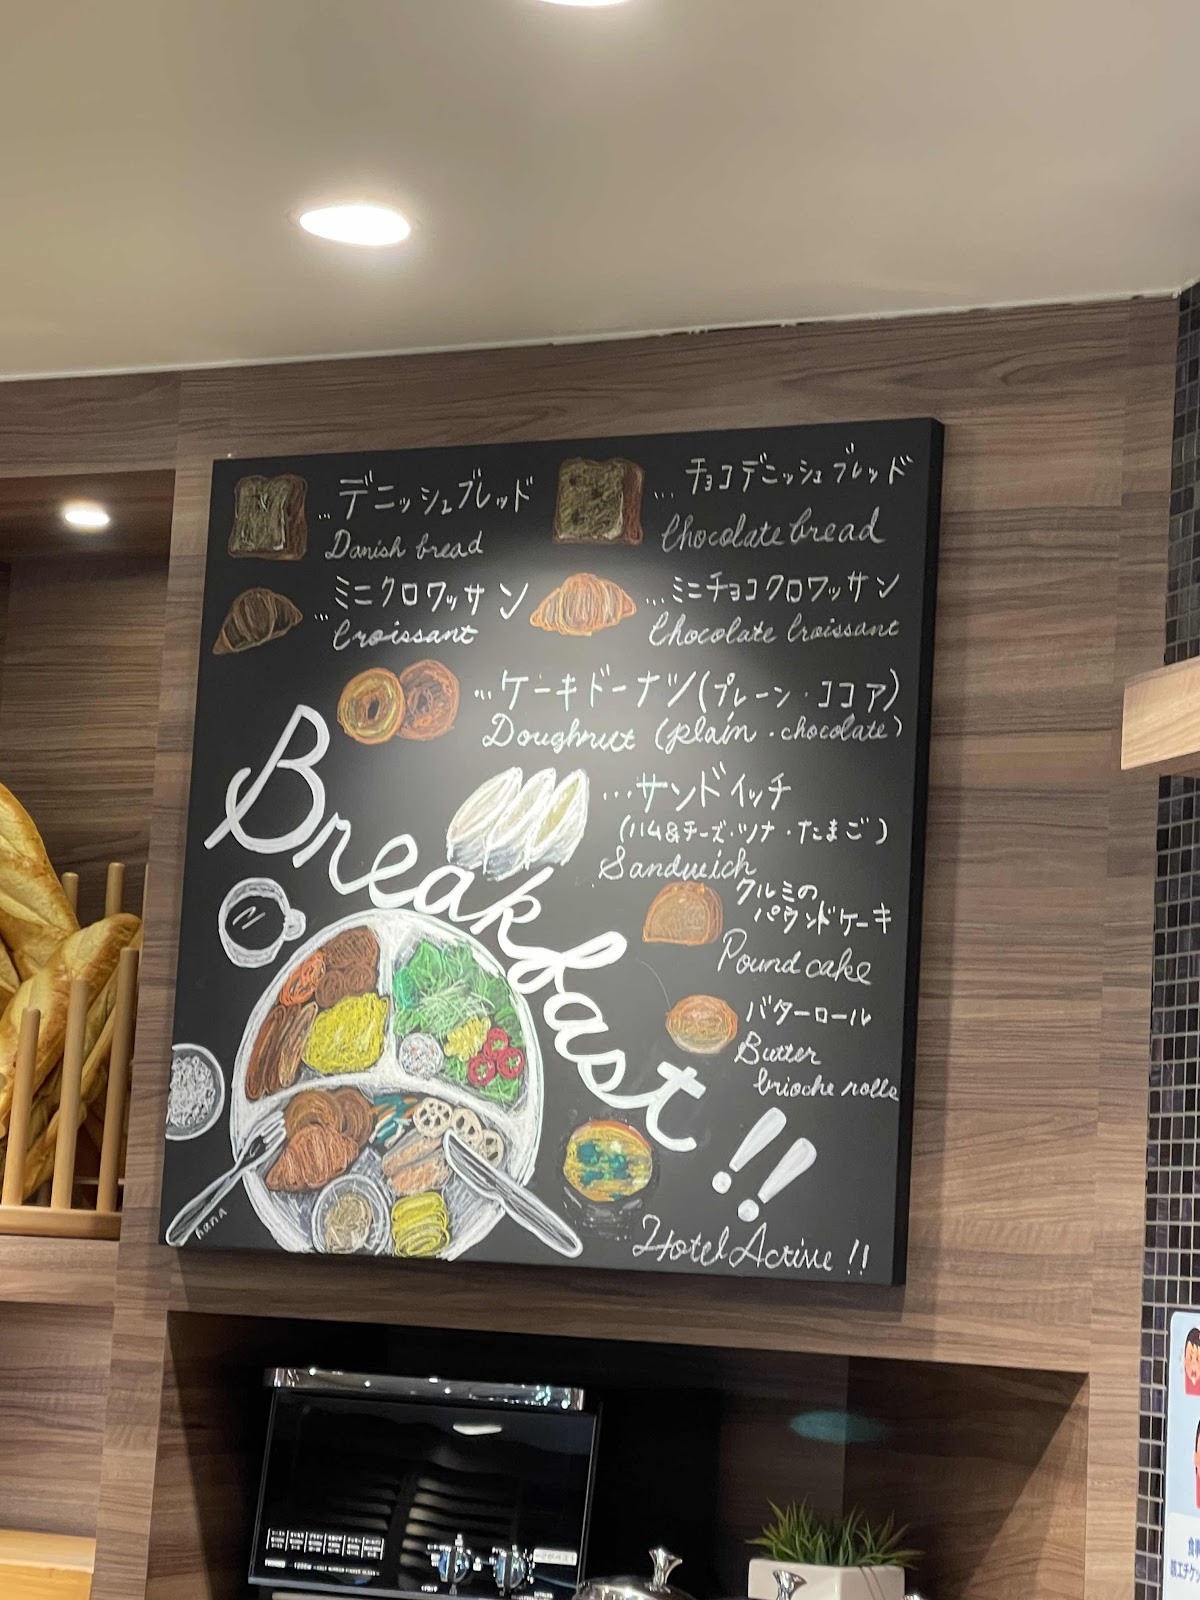 …デニッシュブレッド
Danish bread
…チョコデニッシュブレッド
Chocolate bread
…ミニクロワッサン
Croissant
…ミニチョコクロワッサン
Chocolate Croissant
…ケーキドーナツ(プレーン・ココア)
Doughnut (plain・chocolate)
…サンドイッチ
(ハム&チーズ・ツナ・たまご)
Sandwich
クルミの
パウンドケーキ
Pound cake
バターロール
Butter
brioche rolls
Breakfast!!
hana
Hotel Active!!
1200W